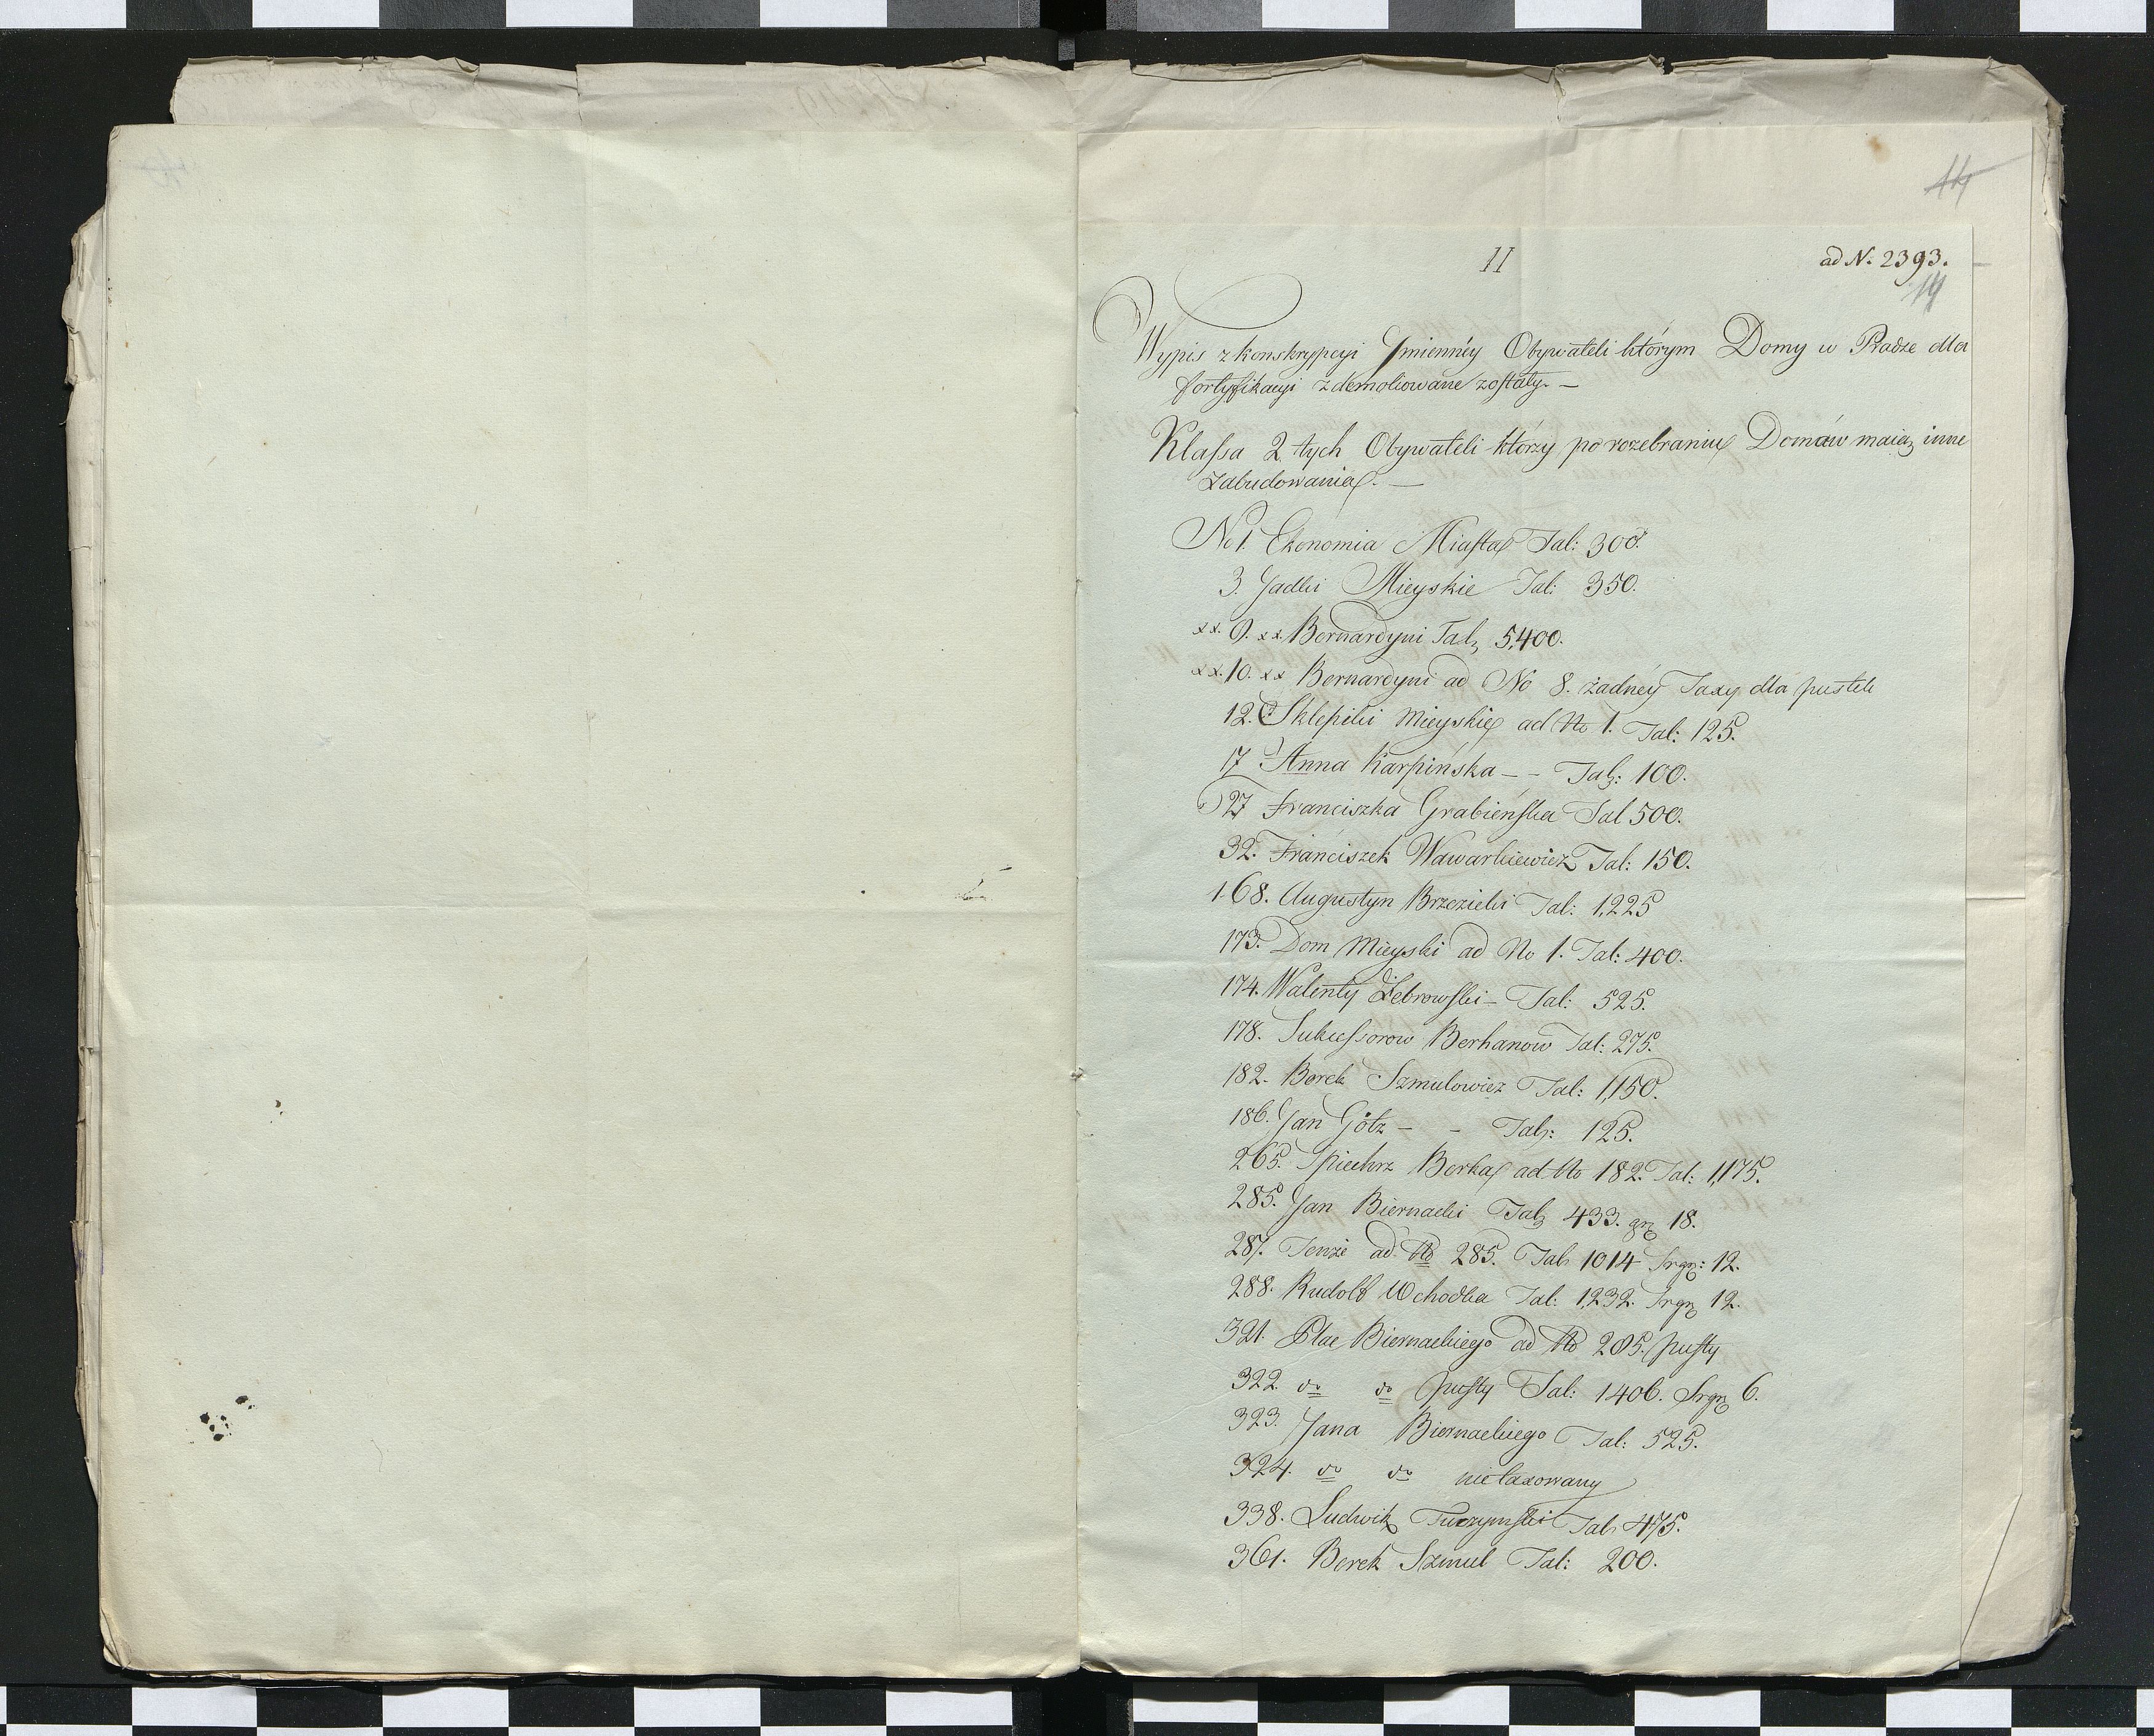 14
11
ad N. 2393.
14
Wypis z konskrypcyi Jmiennéy Obywateli którym Domy w Pradze dla
fortyfikacyi zdemoliowane zostały. —
Klassa 2 tych Obywateli którzy po rozebraniu Domów maią inne
Zabudowania. —
No 1. Ekonomia Miasta Tal: 300.
3. Jadki Mieyskie Tal: 350.
xx. 9. xx Bernardyni Tal, 5,400.
xx. 10. xx Bernardyni ad No 8. żadnéy Taxy dla pustek
12. Sklepiki Mieyskie ad No 1. Tal: 125.
17 Anna Karpińska - - Tal: 100.
27 Franciszka Grabieńska Tal 500.
32. Franciszek Wawarkiewicz Tal: 150.
168. Augustyn Brzezicki Tal: 1,225
173. Dom Mieyski ad No 1. Tal: 400.
174. Walenty Żebrowski - Tal: 525.
178. Sukcessorow Berhanow Tal: 275.
182. Borek Szmulowicz Tal: 1,150.
186. Jan Götz - - Tal: 125.
265. Spichrz Berka ad No 182. Tal: 1,175.
285. Jan Biernacki Tal 433. gr 18.
287. Tenże ad No 285. Tal 1014 Srgr: 12.
288. Rudolf Wchodka Tal: 1,232. Srgr 12.
321. Plac Biernackiego ad No 285. pusty
322 do do pusty Tal: 1406. Srgr 6.
323. Jana Biernackiego Tal: 525.
324. do do nietaxowany
338. Ludwik Tuczymski Tal 475.
361. Berek Szmul Tal: 200.